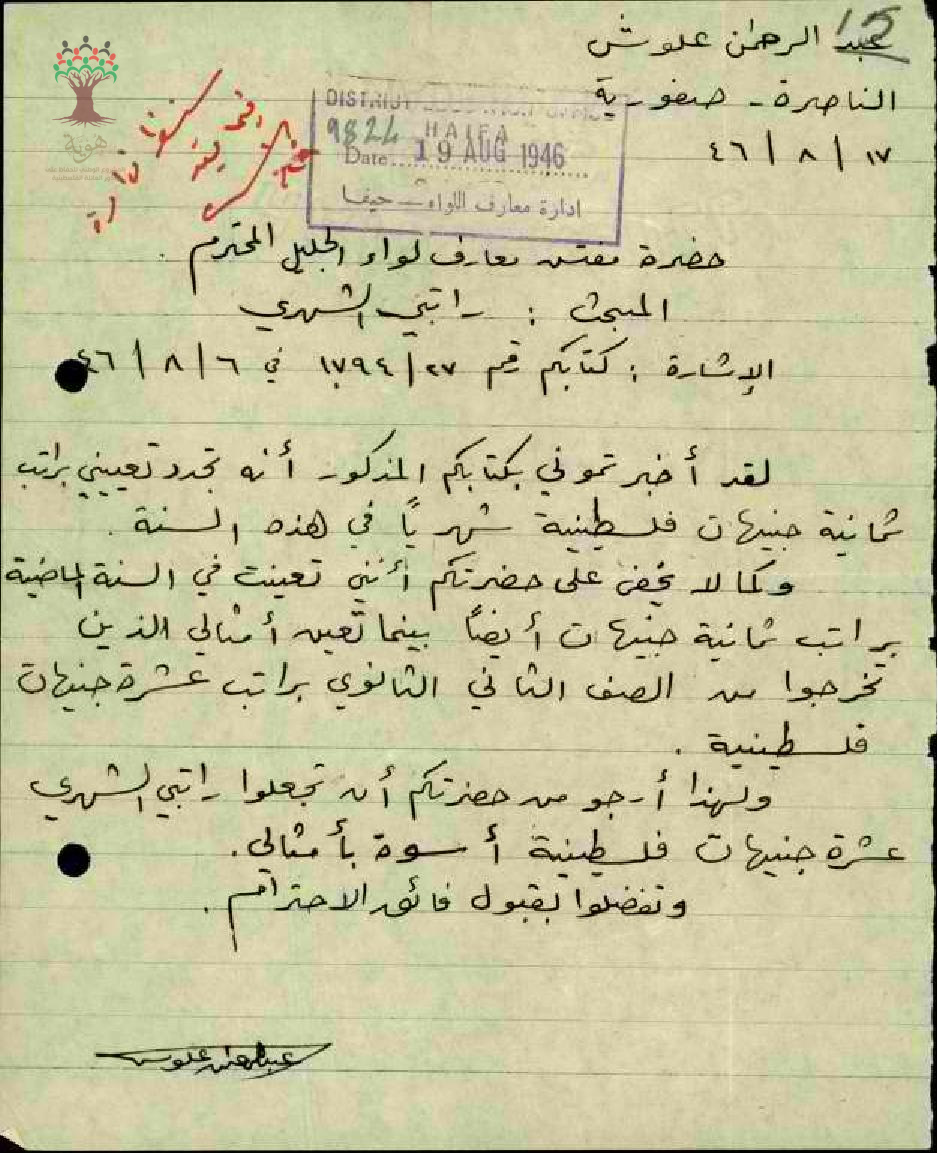 15
عبد الرحمن علوش
الناصرة - صفورية
١٧ / ٨ / ٤٦
DISTRICT EDUCATION OFFICE
HAIFA
9824
Date 19 AUG 1946
ادارة معارف اللواء - حيفا
هوية
حضرة مفتش معارف لواء الجليل المحترم .
المبحث : راتبي الشهري
الإشارة : كتابكم رقم ٢٧/ ١٧٩٤ في ٦ / ٨ / ٤٦
لقد أخبرتموني بكتابكم المذكور أنه تجدد تعييني براتب
ثمانية جنيهات فلسطينية شهرياً في هذه السنة .
وكما لا يخفى على حضرتكم أنني تعينت في السنة الماضية
براتب ثمانية جنيهات أيضاً بينما تعين أمثالي الذين
تخرجوا من الصف الثاني الثانوي براتب عشرة جنيهات
فلسطينية .
ولهذا أرجو من حضرتكم أن تجعلوا راتبي الشهري
عشرة جنيهات فلسطينية أسوة بأمثالي .
وتفضلوا بقبول فائق الاحترام .
عبد الرحمن علوش